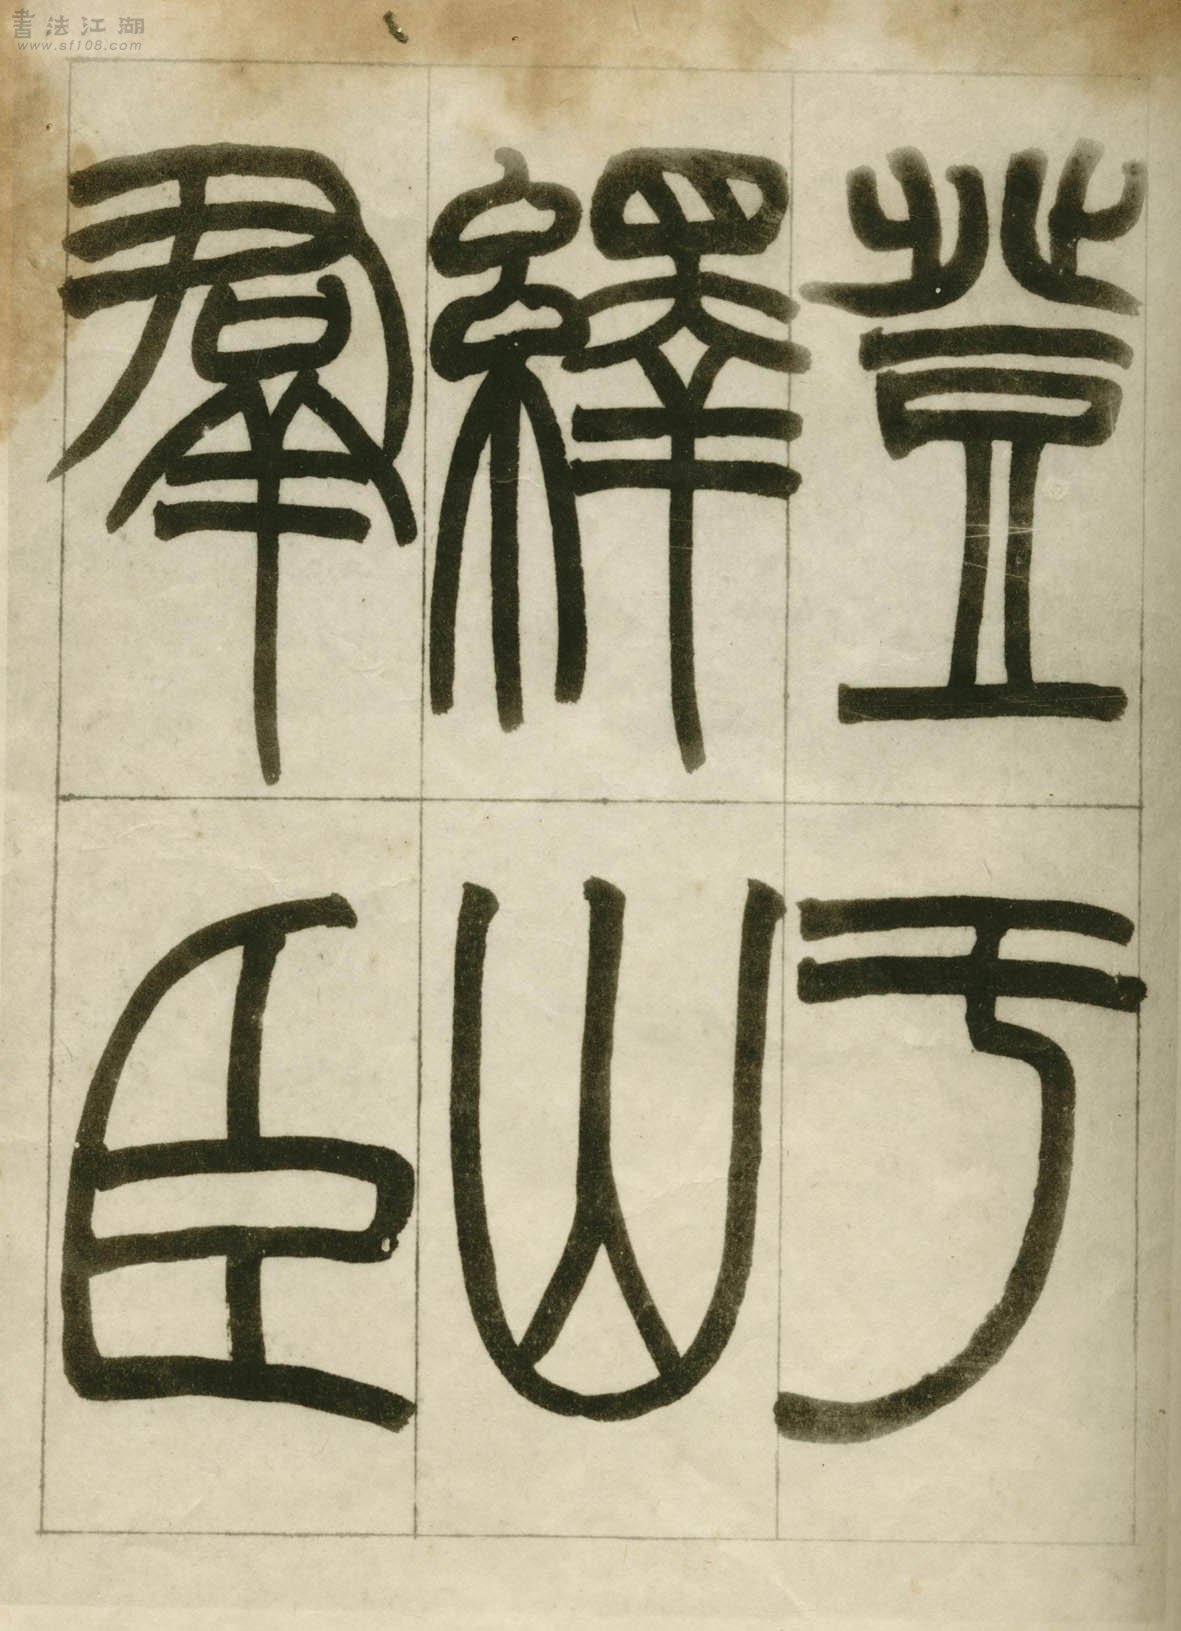 書法江湖
www.sf108.com
登于
繹山
羣臣